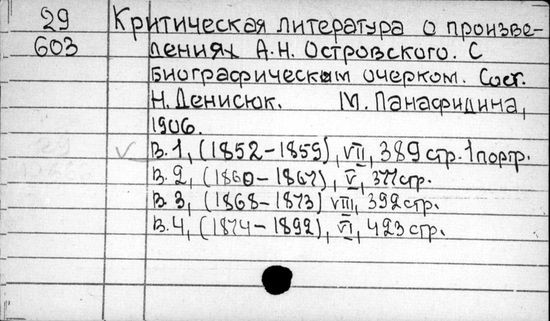 29 Критическая литература о произве-
603 дениях А.Н. Островского. С
биографическим очерком. Сост.
Н. Денисюк. М. Панафидина,
1906.
В.1, (1852-1859), VII, 389 стр. 1 портр.
В.2, (1860-1867), V, 377 стр.
В.3, (1868-1873) VIII, 392 стр.
В.4, (1874-1892), VI, 423 стр.